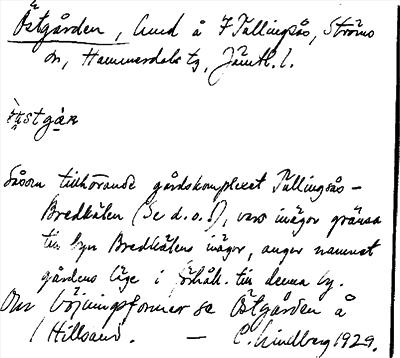 Östgården, hmd å 7 Tullingsås, Ströms
sn, Hammerdals tg, Jämtl. l.
östga̱ɴ
Såsom tillhörande gårdskomplexet Tullingsås –
Bredkälen (Se d. o.!), vars inägor gränsa
till byn Bredkälens inägor, anger namnet
gårdens läge i förhåll. till denna by.
Om böjningsformer se Östgården å
1 Hillsand. — C. Lindberg 1929.